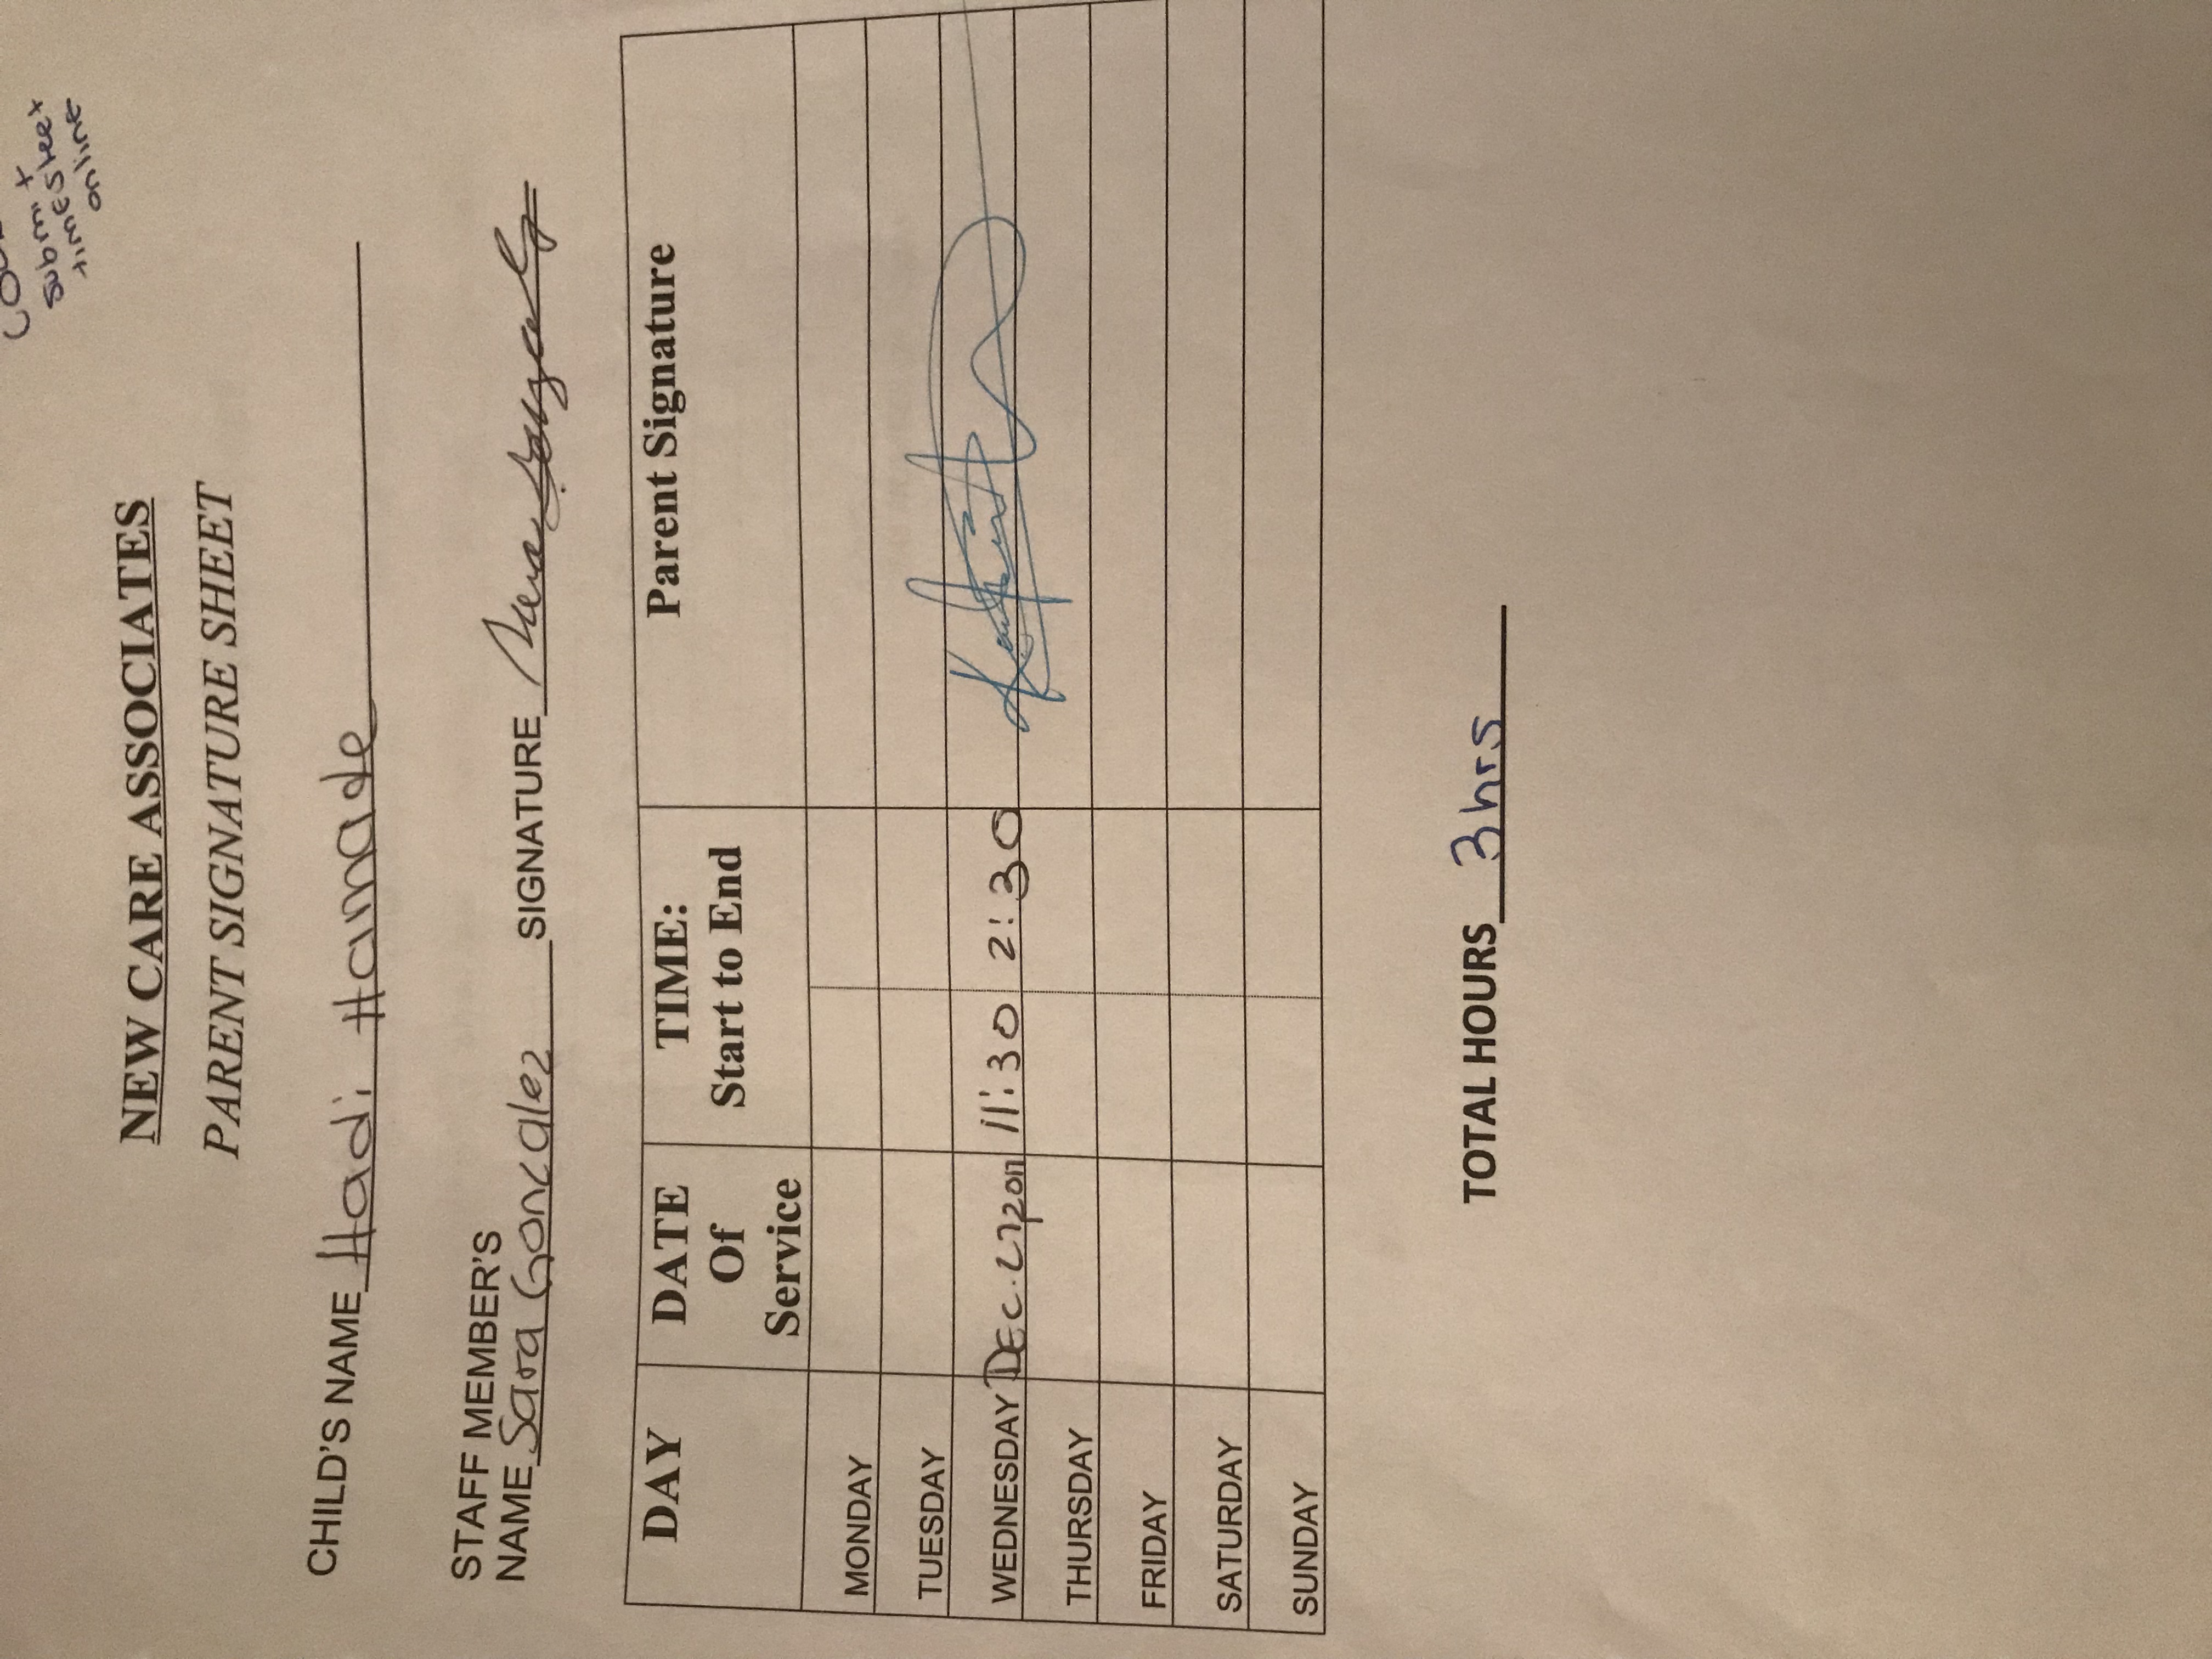 submit
timesheet
online
NEW CARE ASSOCIATES
PARENT SIGNATURE SHEET
CHILD'S NAME Hadi Hamade
STAFF MEMBER'S
NAME Sara Gonzalez SIGNATURE Sara Gonzalez
DAY DATE Of Service TIME: Start to End Parent Signature
MONDAY
TUESDAY
WEDNESDAY DEC. 27, 2017 11:30 2:30
THURSDAY
FRIDAY
SATURDAY
SUNDAY
TOTAL HOURS 3hrs